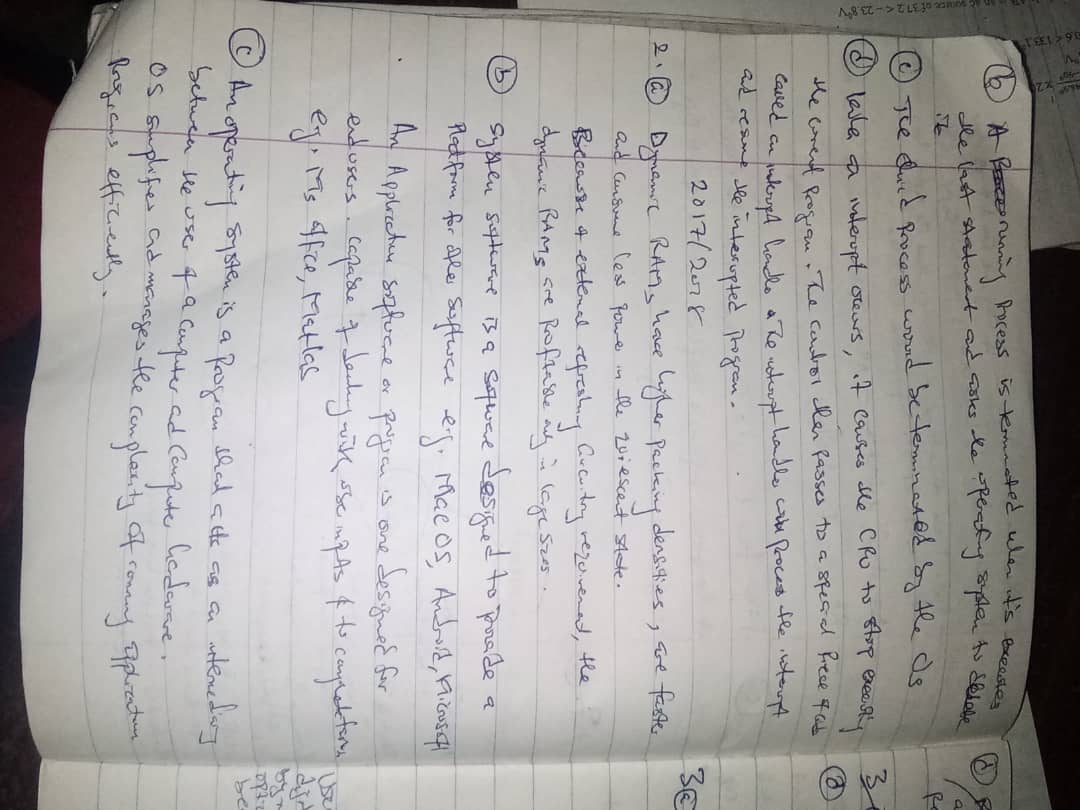 (b) A running Process is terminated when it's executes
the last statement and asks the operating system to delete
it
(c) The child process would be terminated by the OS
(d) When an interrupt occurs, it causes the CPU to stop executing
the current Program. The control then passes to a special Piece of code
called an interrupt handler. The interrupt handler will process the interrupt
and resume the interrupted Program.
2017/2018
2. (a) Dynamic RAMs have higher packing densities, are faster
and consume less power in the quiescent state.
Because of external refreshing Circuitry required, the
dynamic RAMs are Profitable only in large sizes.
(b) System software is a software designed to provide a
Platform for other software eg. Mac OS, Android, Microsoft
An Application software or program is one designed for
endusers. capable of dealing with user inputs & to
eg. Ms office, Matlab
(c) An operating system is a Program that acts as an intermediary
between the user of a computer and computer hardware.
OS simplifies and manages the complexity of running application
Programs efficiently.
(d)
3
(a)
3(a)